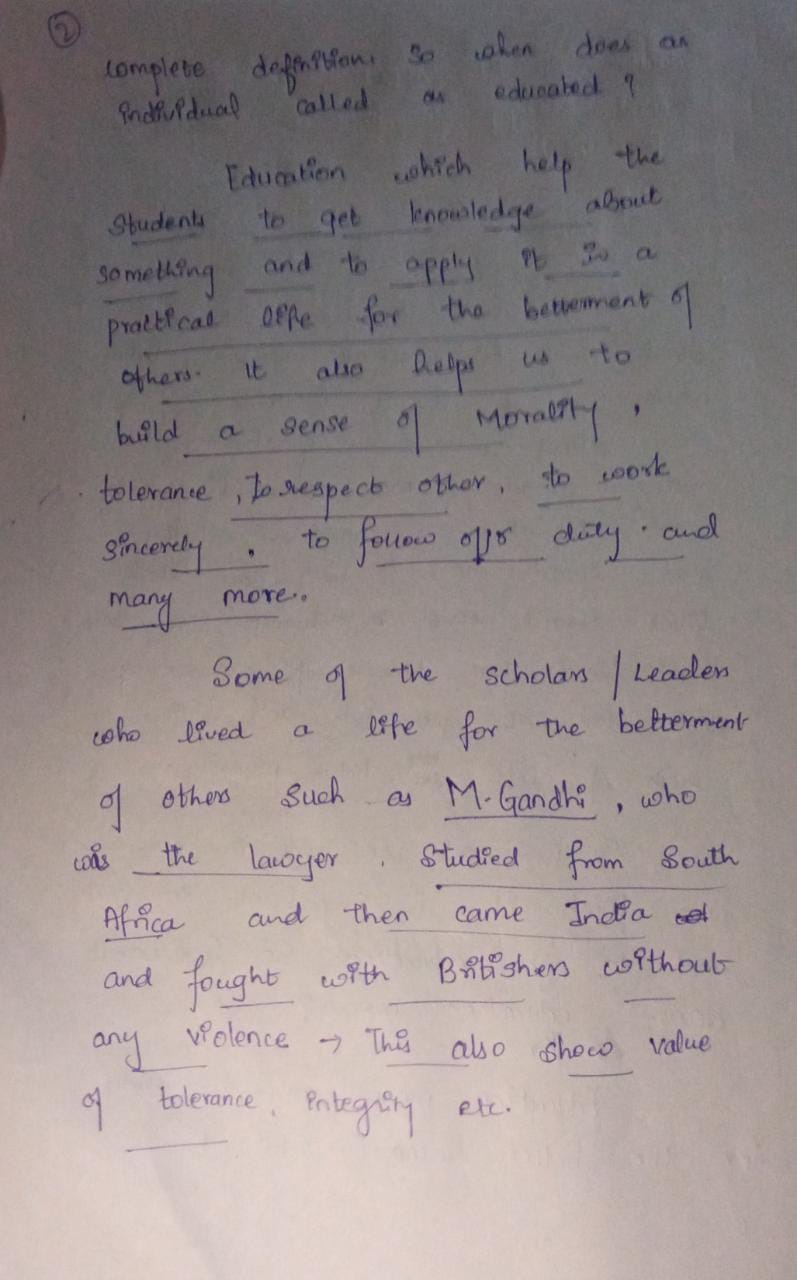 2
complete definition. So when does an
individual called as educated ?
Education which help the
students to get knowledge about
something and to apply it in a
practical life for the betterment of
others. It also helps us to
build a sense of Morality,
tolerance, to respect other, to work
sincerely, to follow duty. and
many more..
Some of the scholars / Leaders
who lived a life for the betterment
of others such as M. Gandhi, who
was the lawyer. Studied from South
Africa and then came India
and fought with Britishers without
any violence → This also show value
of tolerance, integrity etc.